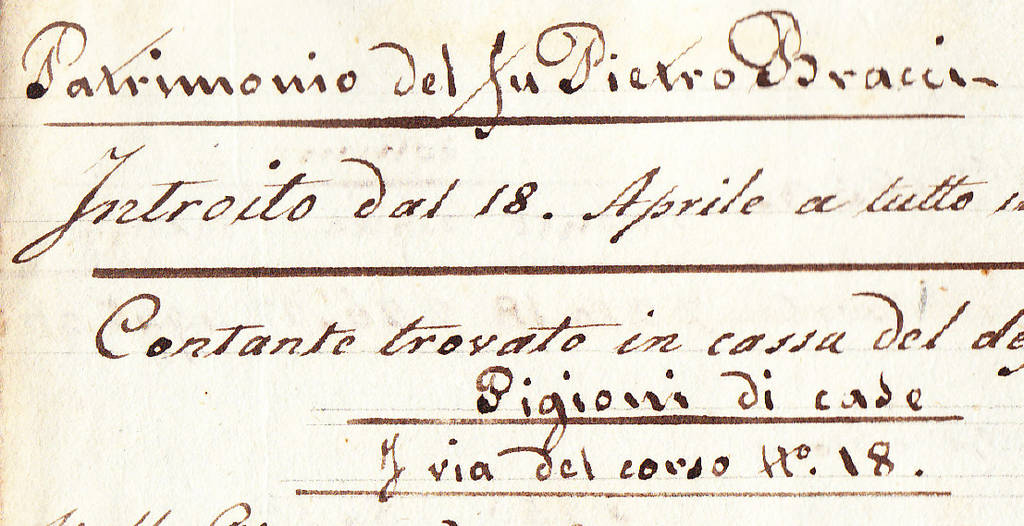 Patrimonio del fu Pietro Bracci
Introito dal 18. Aprile a tutto
Contante trovato in cassa del
Pigioni di case
I via del corso N.º 18.